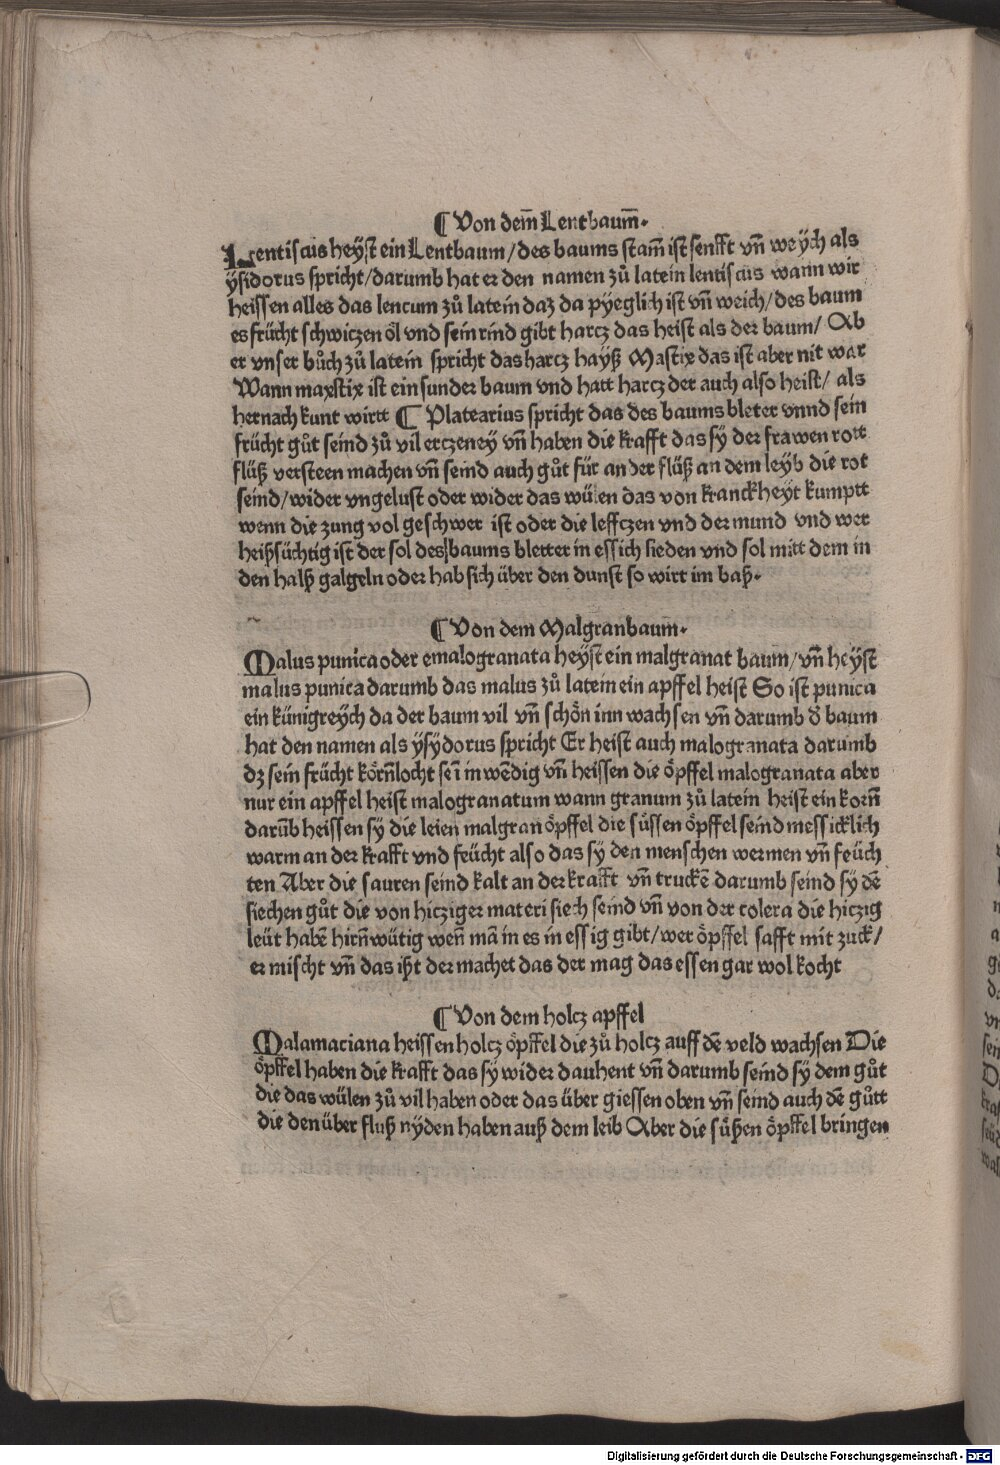 ¶ Von dem̃ Lentbaum̃.
Lentiscus heyſt ein Lentbaum/des baums ſtam̃ iſt ſenfft vñ weych als
yſidorus ſpricht/darumb hat er den namen zů latein lentiſcus wann wir
heiſſen alles das lencum zů latein daz da pyeglich iſt vñ weich/des baum
es frücht ſchwiczen öl vnd ſein rind gibt harcz das heiſt als der baum/ Ab
er vnſer bůch zů latein ſpricht das harcz hayß Maſtix das iſt aber nit war
Wann maxſtix iſt ein ſunder baum vnd hatt harcz der auch alſo heiſt/ als
hernach kunt wirtt ¶ Platearius ſpricht das des baums bleter vnnd ſein
frücht gůt ſeind zů vil erczeney vñ haben die krafft das ſy der frawen rott
flüß verſteen machen vñ ſeind auch gůt für ander flüß an dem leyb die rot
ſeind/wider vngeluſt oder wider das wülen das von kranckheyt kumptt
wenn die zung vol geſchwer iſt oder die leffczen vnd der mund vnd wer
heiß ſüchtig iſt der ſol des baums bletter in eſſich ſieden vnd ſol mitt dem in
den halß galgeln oder hab ſich über den dunſt ſo wirt im baß.
¶ Von dem Malgranbaum.
Malus punica oder emalogranata heyſt ein malgranat baum/vñ heyſt
malus punica darumb das malus zů latein ein apffel heiſt So iſt punica
ein künigreych da der baum vil vñ ſchön inn wachſen vñ darumb d̕ baum
hat den namen als yſydorus ſpricht Er heiſt auch malogranata darumb
dz ſein frücht körñlocht ſeī in wēdig vñ heiſſen die öpffel malogranata aber
nur ein apffel heiſt malogranatum wann granum zů latein heiſt ein korñ
darūb heiſſen ſy die leien malgran öpffel die ſüſſen öpffel ſeind meſſicklich
warm an der krafft vnd feücht alſo das ſy den menſchen wermen vñ feüch
ten Aber die ſauren ſeind kalt an der krafft vñ truckē darumb ſeind ſy dē
ſiechen gůt die von hicziger materi ſiech ſeind vñ von der colera die hiczig
leüt habē hirñwütig weñ mā in es in eſſig gibt/wer öpffel ſafft mit zuck/
er miſcht vñ das ißt der machet das der mag das eſſen gar wol kocht
¶ Von dem holcz apffel
Malamaciana heiſſen holcz öpffel die zů holcz auff dē veld wachſen Die
öpffel haben die krafft das ſy wider dauhent vñ darumb ſeind ſy dem gůt
die das wülen zů vil haben oder das über gieſſen oben vñ ſeind auch dē gůtt
die den über fluß nyden haben auß dem leib Aber die ſüßen öpffel bringen
Digitalisierung gefördert durch die Deutsche Forschungsgemeinschaft - DFG